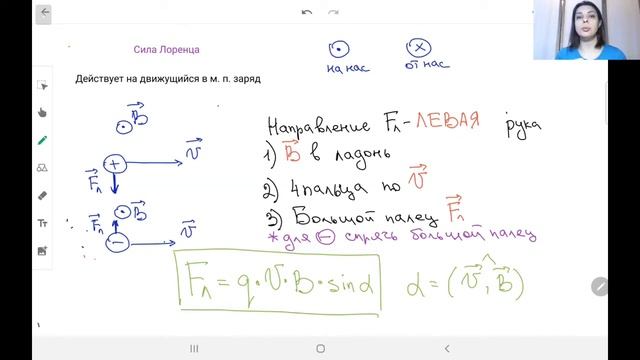 Сила Лоренца
на нас
от нас
Действует на движущийся в м. п. заряд
B
+
v
Fл
Fл
B
−
v
Направление Fл - ЛЕВАЯ рука
1) B в ладонь
2) 4 пальца по v
3) Большой палец Fл
* для ⊖ спрячь большой палец
Fл = q · v · B · sin α
α = (v, ^ B)
Tт